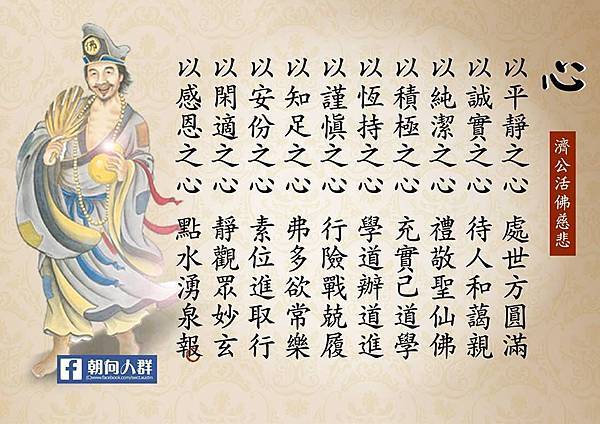 心
濟公活佛慈悲
以平靜之心 處世方圓滿
以誠實之心 待人和藹親
以純潔之心 禮敬聖仙佛
以積極之心 充實己道學
以恆持之心 學道辦道進
以謹慎之心 行險戰兢履
以知足之心 弗多欲常樂
以安份之心 素位進取行
以閑適之心 靜觀眾妙玄
以感恩之心 點水湧泉報
佛
f 朝向人群